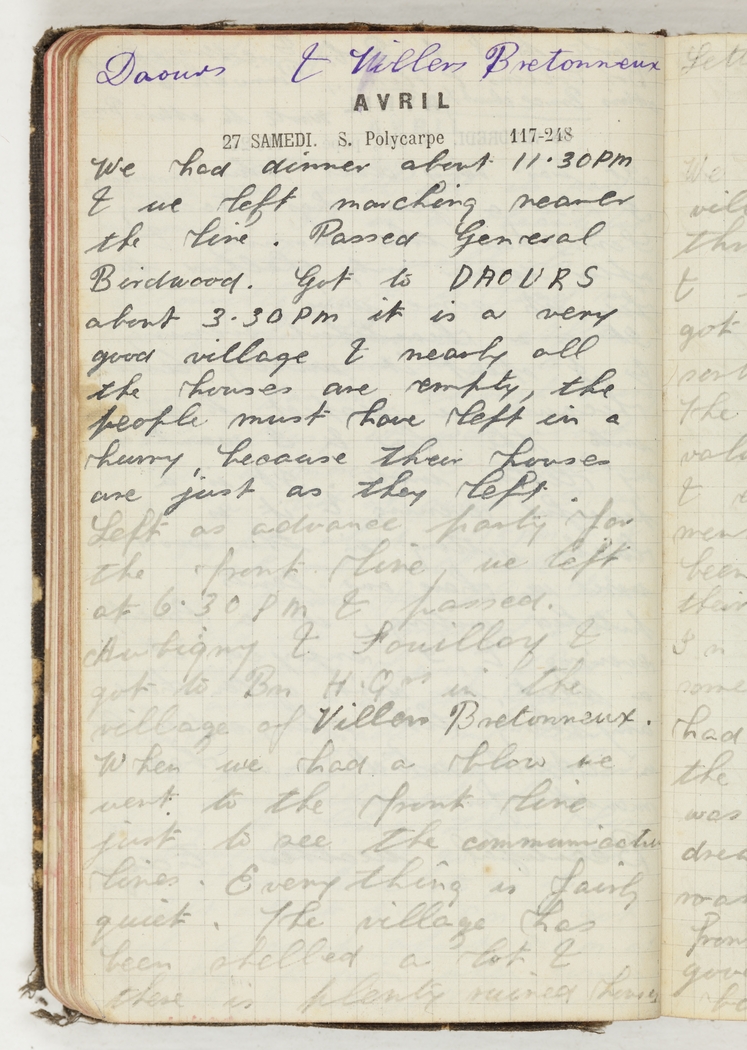 Daours & Villers Bretonneux
AVRIL
27 SAMEDI. S. Polycarpe 117-248
We had dinner about 11.30PM
& we left marching nearer
the line. Passed General
Birdwood. Got to DAOURS
about 3.30PM it is a very
good village & nearly all
the houses are empty, the
people must have left in a
hurry, because their houses
are just as they left.
Left as advance party for
the front line, we left
at 6.30PM & passed.
Aubigny & Fouilloy &
got to Bn H.Qrs in the
village of Villers Bretonneux.
When we had a blow we
went to the front line
just to see the communication
lines. Everything is fairly
quiet. The village has
been shelled a lot &
there is plenty ruined houses
We
the
&
got
The
&
been
their
In
some
had
the
was